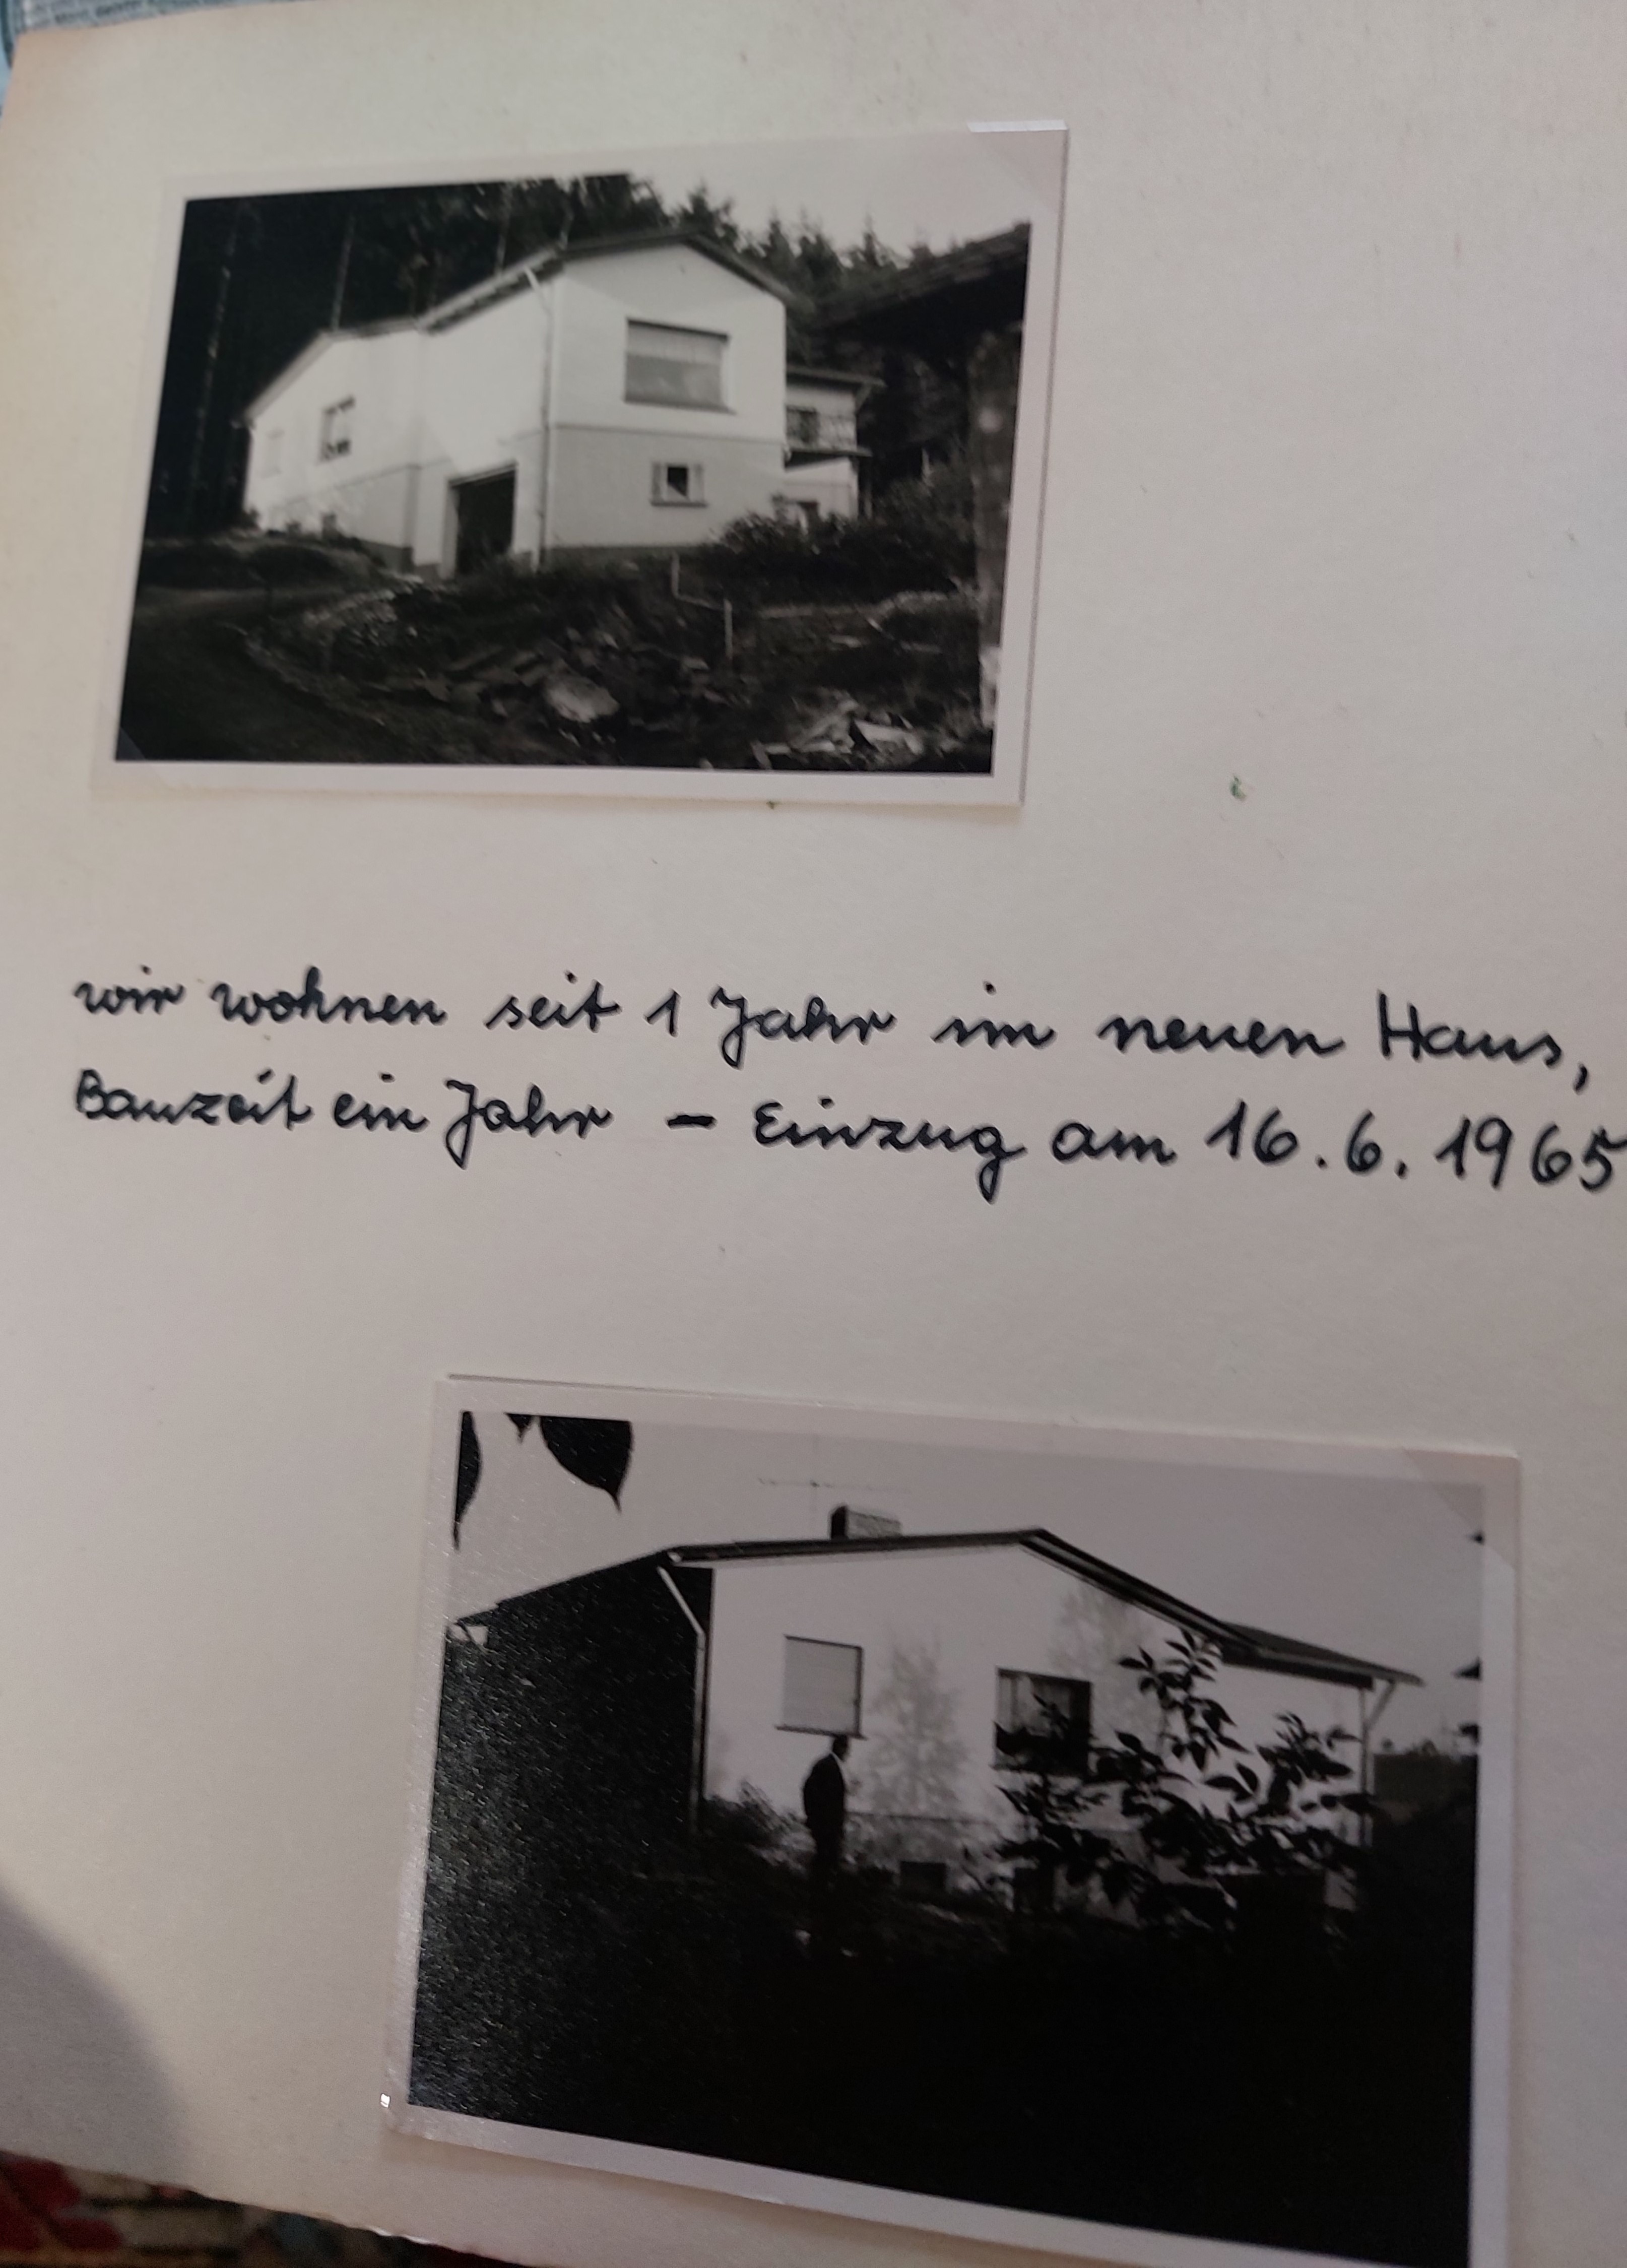 wir wohnen seit 1 Jahr im neuen Haus,
Bauzeit ein Jahr – Einzug am 16.6.1965